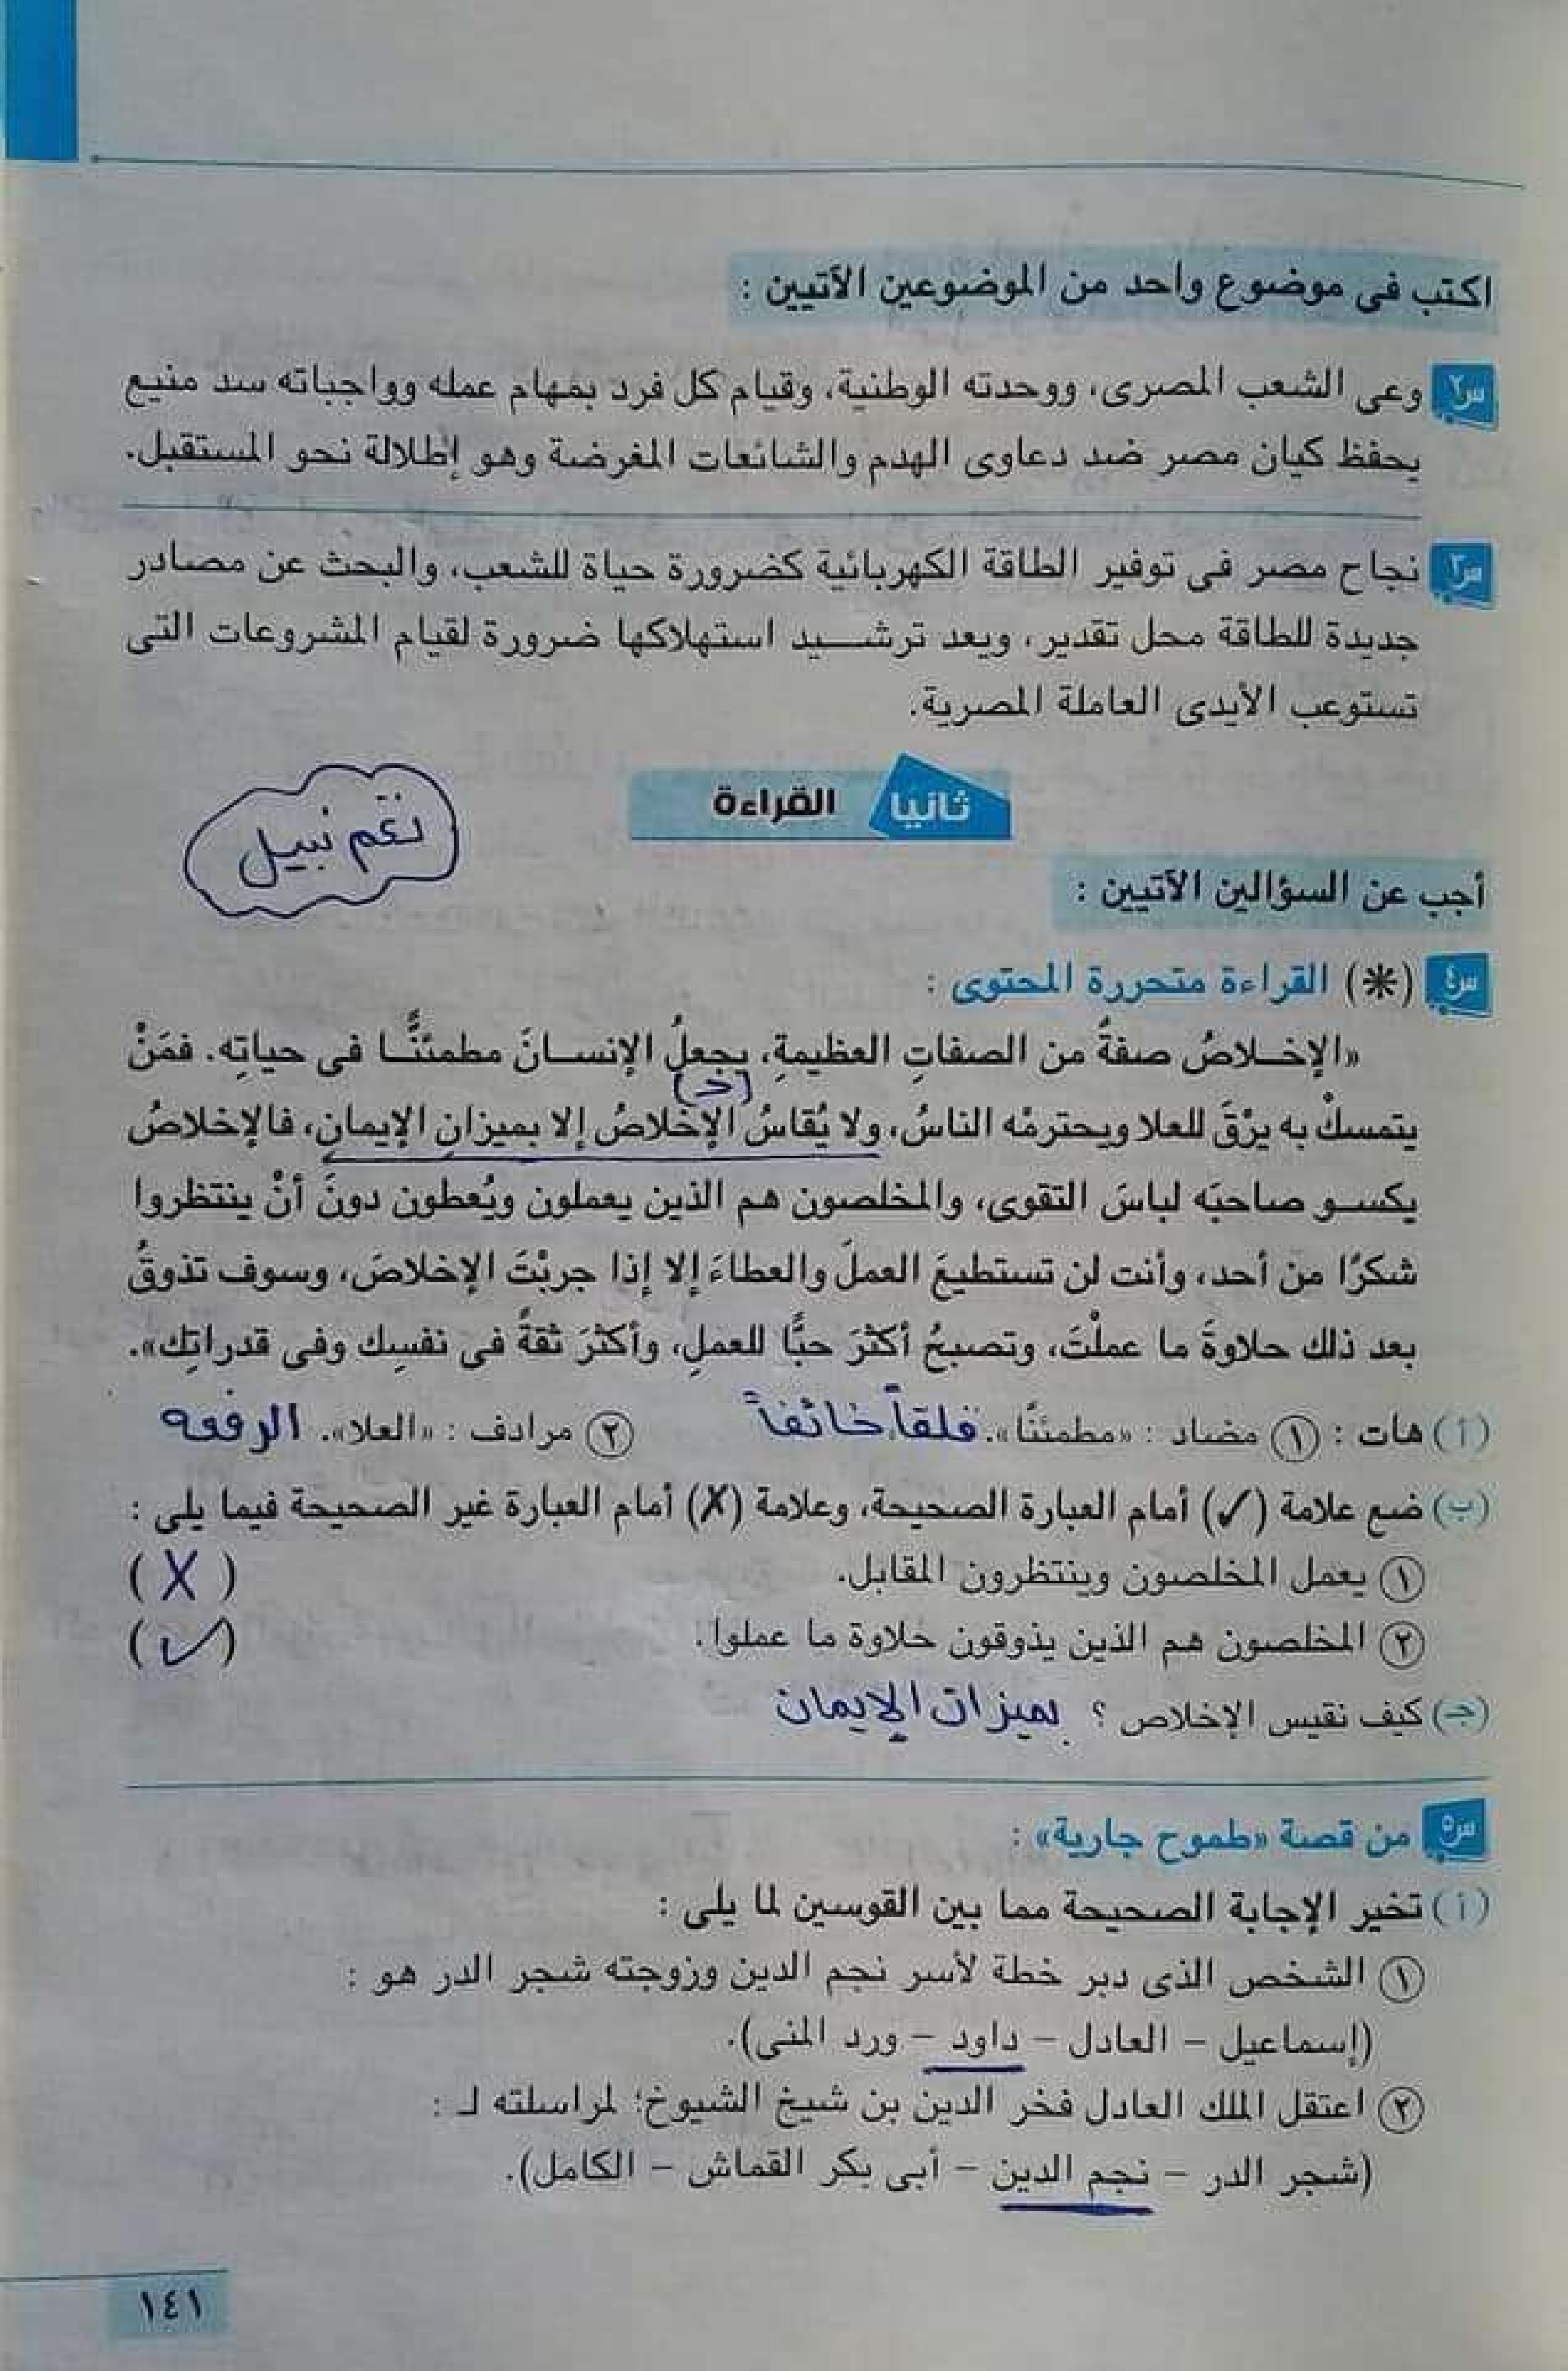 اكتب فى موضوع واحد من الموضوعين الآتيين :
س٢ وعى الشعب المصرى، ووحدته الوطنية، وقيام كل فرد بمهام عمله وواجباته سد منيع
يحفظ كيان مصر ضد دعاوى الهدم والشائعات المغرضة وهو إطلالة نحو المستقبل.
س٣ نجاح مصر فى توفير الطاقة الكهربائية كضرورة حياة للشعب، والبحث عن مصادر
جديدة للطاقة محل تقدير، ويعد ترشــيد استهلاكها ضرورة لقيام المشروعات التى
تستوعب الأيدى العاملة المصرية.
ثانيا القراءة
نغم نبيل
أجب عن السؤالين الآتيين :
س٤ (*) القراءة متحررة المحتوى :
«الإخــلاصُ صفةٌ من الصفاتِ العظيمةِ، يجعلُ الإنســانَ مطمئنًّــا فى حياتِه. فمَنْ
(جـ)
يتمسكْ به يرْقَ للعلا ويحترمْه الناسُ، ولا يُقاسُ الإخلاصُ إلا بميزانِ الإيمانِ، فالإخلاصُ
يكســو صاحبَه لباسَ التقوى، والمخلصون هم الذين يعملون ويُعطون دونَ أنْ ينتظروا
شكرًا من أحد، وأنت لن تستطيعَ العملَ والعطاءَ إلا إذا جربْتَ الإخلاصَ، وسوف تذوقُ
بعد ذلك حلاوةَ ما عملْتَ، وتصبحُ أكثرَ حبًّا للعملِ، وأكثرَ ثقةً فى نفسِك وفى قدراتِك».
(أ) هات : ١ مضاد : «مطمئنًا». قلقاً خائفاً ٢ مرادف : «العلا». الرفعه
(ب) ضع علامة (✓) أمام العبارة الصحيحة، وعلامة (✗) أمام العبارة غير الصحيحة فيما يلى :
١ يعمل المخلصون وينتظرون المقابل. (✗)
٢ المخلصون هم الذين يذوقون حلاوة ما عملوا. (✓)
(جـ) كيف نقيس الإخلاص ؟ بميزان الإيمان
س٥ من قصة «طموح جارية» :
(أ) تخير الإجابة الصحيحة مما بين القوسين لما يلى :
١ الشخص الذى دبر خطة لأسر نجم الدين وزوجته شجر الدر هو :
(إسماعيل – العادل – داود – ورد المنى).
٢ اعتقل الملك العادل فخر الدين بن شيخ الشيوخ؛ لمراسلته لـ :
(شجر الدر – نجم الدين – أبى بكر القماش – الكامل).
١٤١